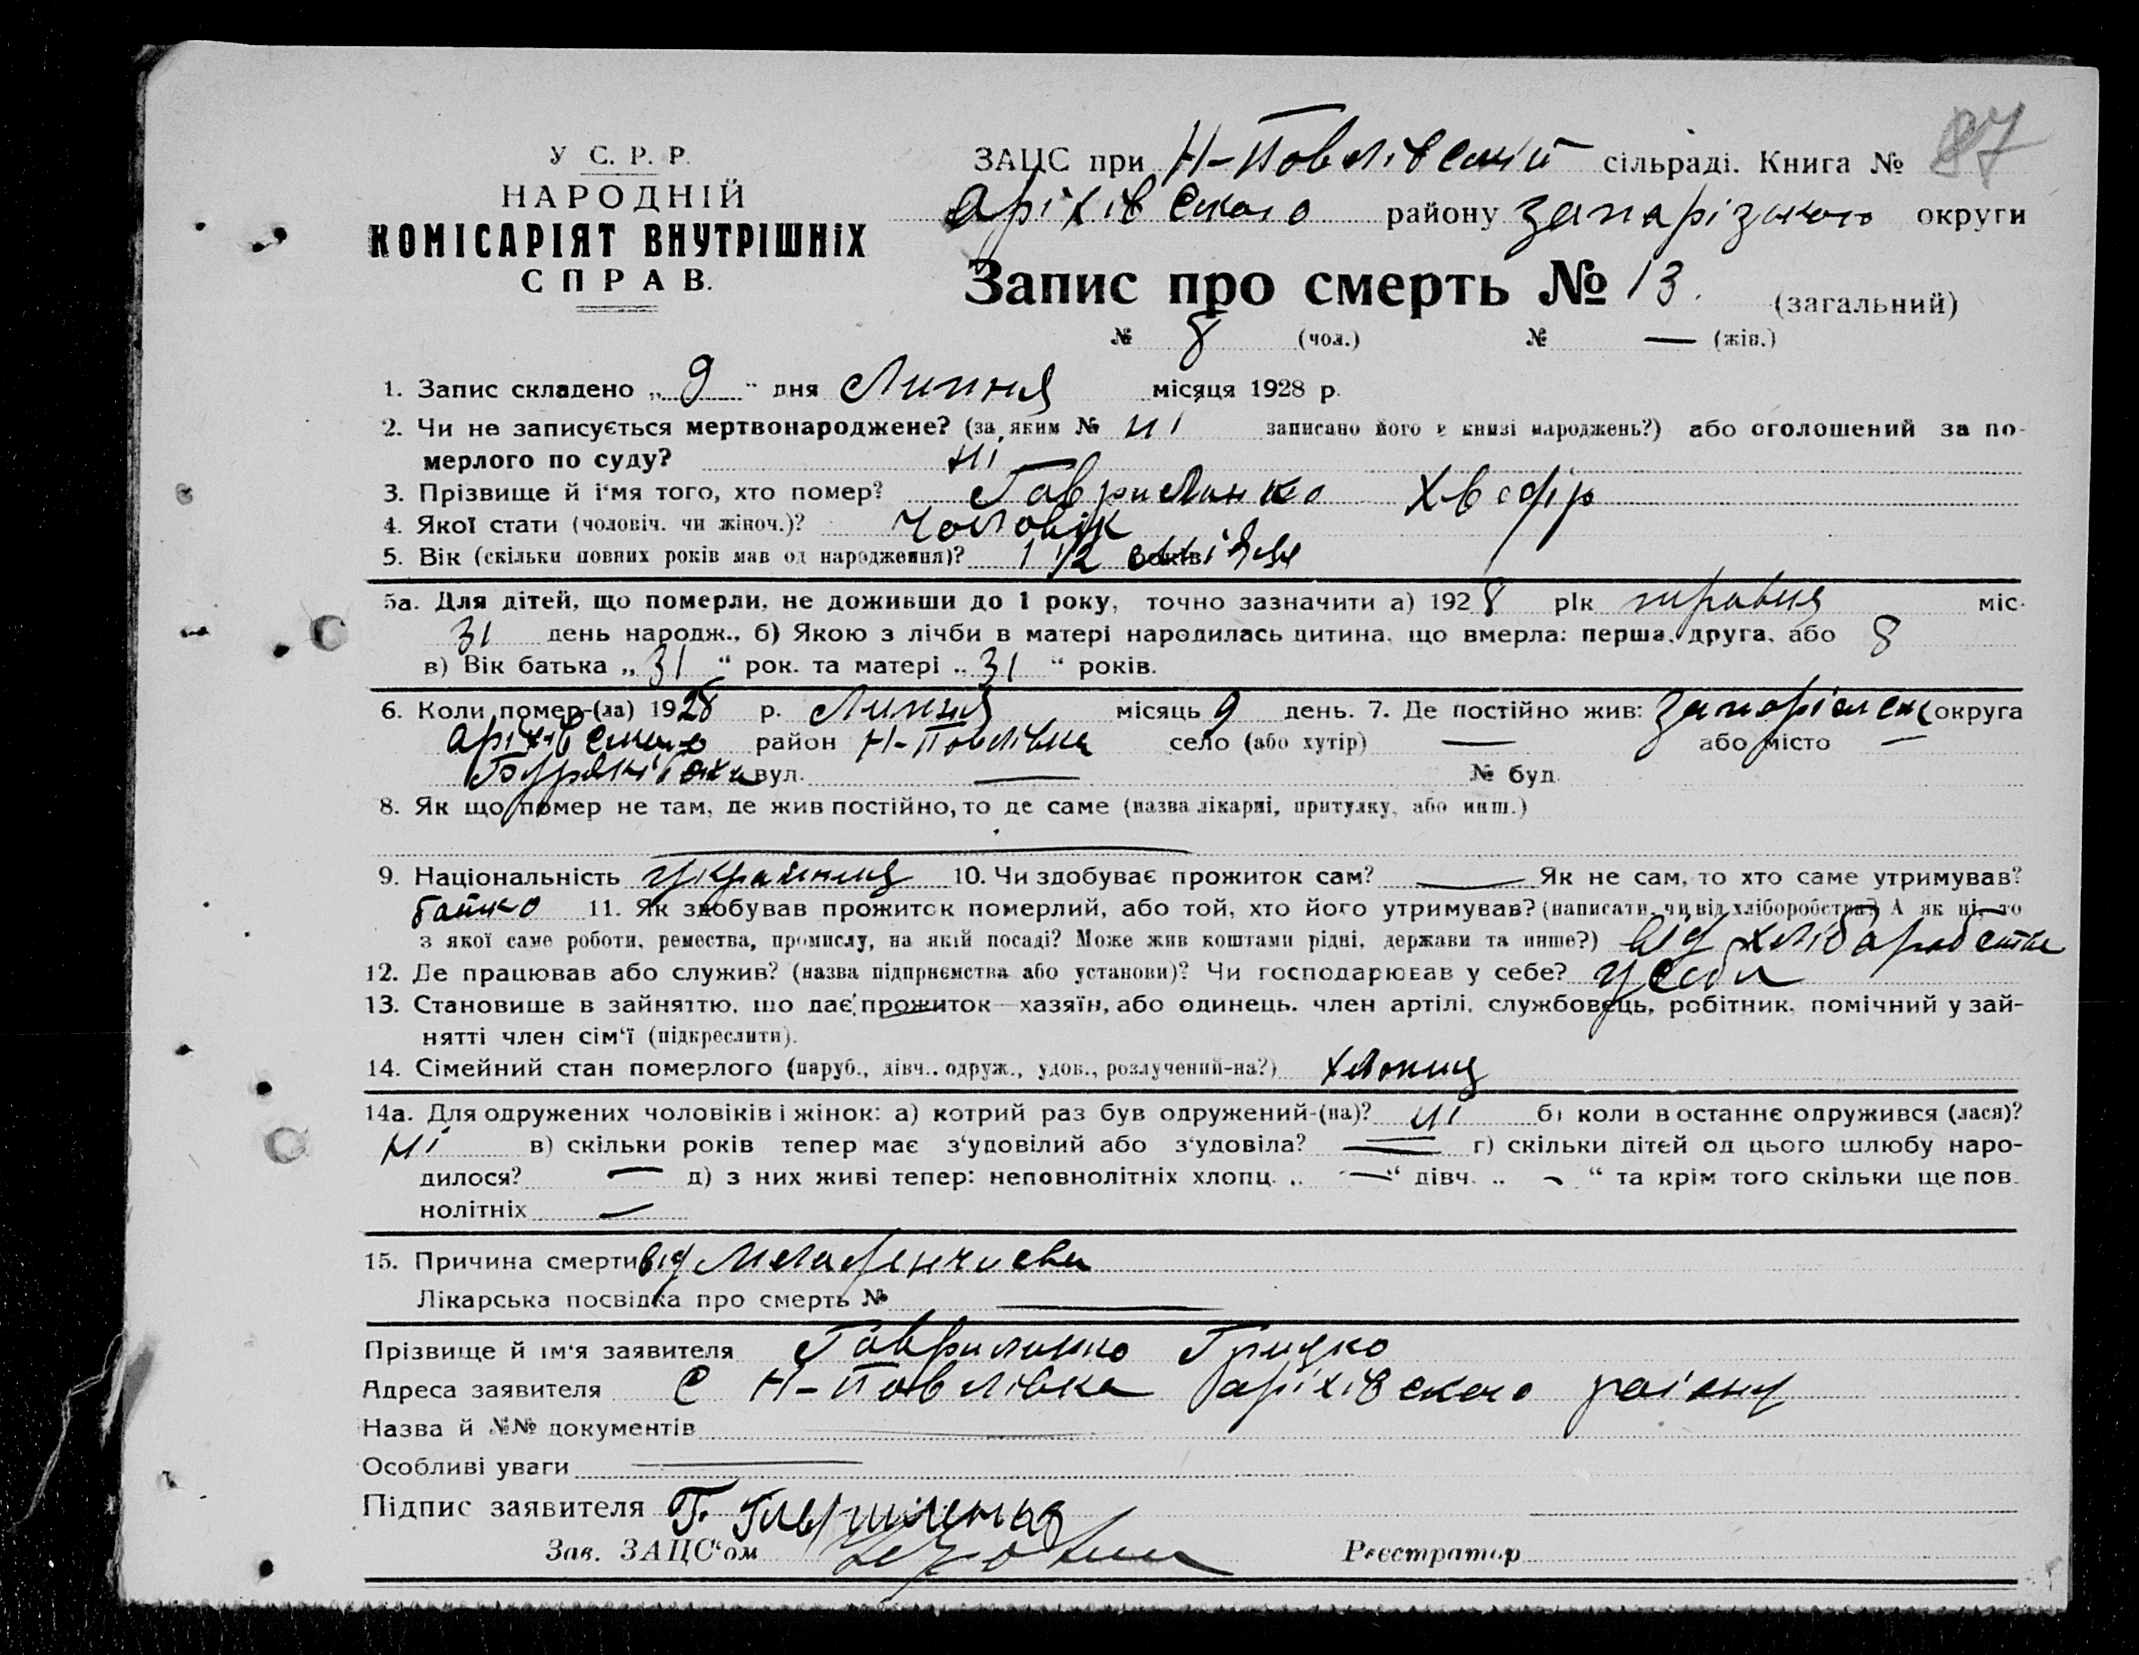 87
У С. Р. Р.
НАРОДНІЙ
КОМІСАРІЯТ ВНУТРІШНІХ
СПРАВ.
ЗАЦС при Н-Повлівській сільраді. Книга №
Аріхівського району Запарізького округи
Запис про смерть № 13. (загальний)
№ 8 (чол.) № — (жін.)
1. Запис складено „ 9 “ дня Липня місяця 1928 р.
2. Чи не записується мертвонароджене? (за яким № ні записано його в книзі народжень?) або оголошений за по-
мерлого по суду? ні
3. Прізвище й і'мя того, хто помер? Гаврилинко Хведір
4. Якої стати (чоловіч. чи жіноч.)? чоловік
5. Вік (скільки повних років мав од народження)? 1 1/2 місяця
5а. Для дітей, що померли, не доживши до 1 року, точно зазначити а) 1928 рік травня міс.
31 день народж., б) Якою з лічби в матері народилась дитина, що вмерла: перша, друга, або 8
в) Вік батька „ 31 “ рок. та матері „ 31 “ років.
6. Коли помер-(ла) 1928 р. Липня місяць 9 день. 7. Де постійно жив: округа
Аріхівського район Н-Повлівка село (або хутір) — або місто —
вул. — № буд.
8. Як що помер не там, де жив постійно, то де саме (назва лікарні, притулку, або инш.)
9. Національність 10. Чи здобуває прожиток сам? — Як не сам, то хто саме утримував?
батько 11. Як здобував прожиток померлий, або той, хто його утримував? (написати, чи від хліборобства? А як ні, то
з якої саме роботи, ремества, промислу, на якій посаді? Може жив коштами рідні, держави та инше?) від хлібаробства
12. Де працював або служив? (назва підприємства або установи)? Чи господарював у себе? у себи
13. Становище в зайняттю, що дає прожиток—хазяїн, або одинець, член артілі, службовець, робітник, помічний у зай-
нятті член сім'ї (підкреслити).
14. Сімейний стан померлого (паруб., дівч., одруж., удов., розлучений-на?) хлопиц
14а. Для одружених чоловіків і жінок: а) котрий раз був одружений-(на)? ні б) коли в останнє одружився (лася)?
ні в) скільки років тепер має з'удовілий або з'удовіла? — г) скільки дітей од цього шлюбу наро-
дилося? — д) з них живі тепер: неповнолітніх хлопц. „ — “ дівч. „ — “ та крім того скільки ще пов-
нолітніх —
15. Причина смерти від
Лікарська посвідка про смерть № —
Прізвище й ім'я заявителя Гаврилинко Грицко
Адреса заявителя с Н-Повлівка Аріхівского району
Назва й №№ документів —
Особливі уваги —
Підпис заявителя Г. Гавриленко
Зав. ЗАЦС'ом Реєстратор